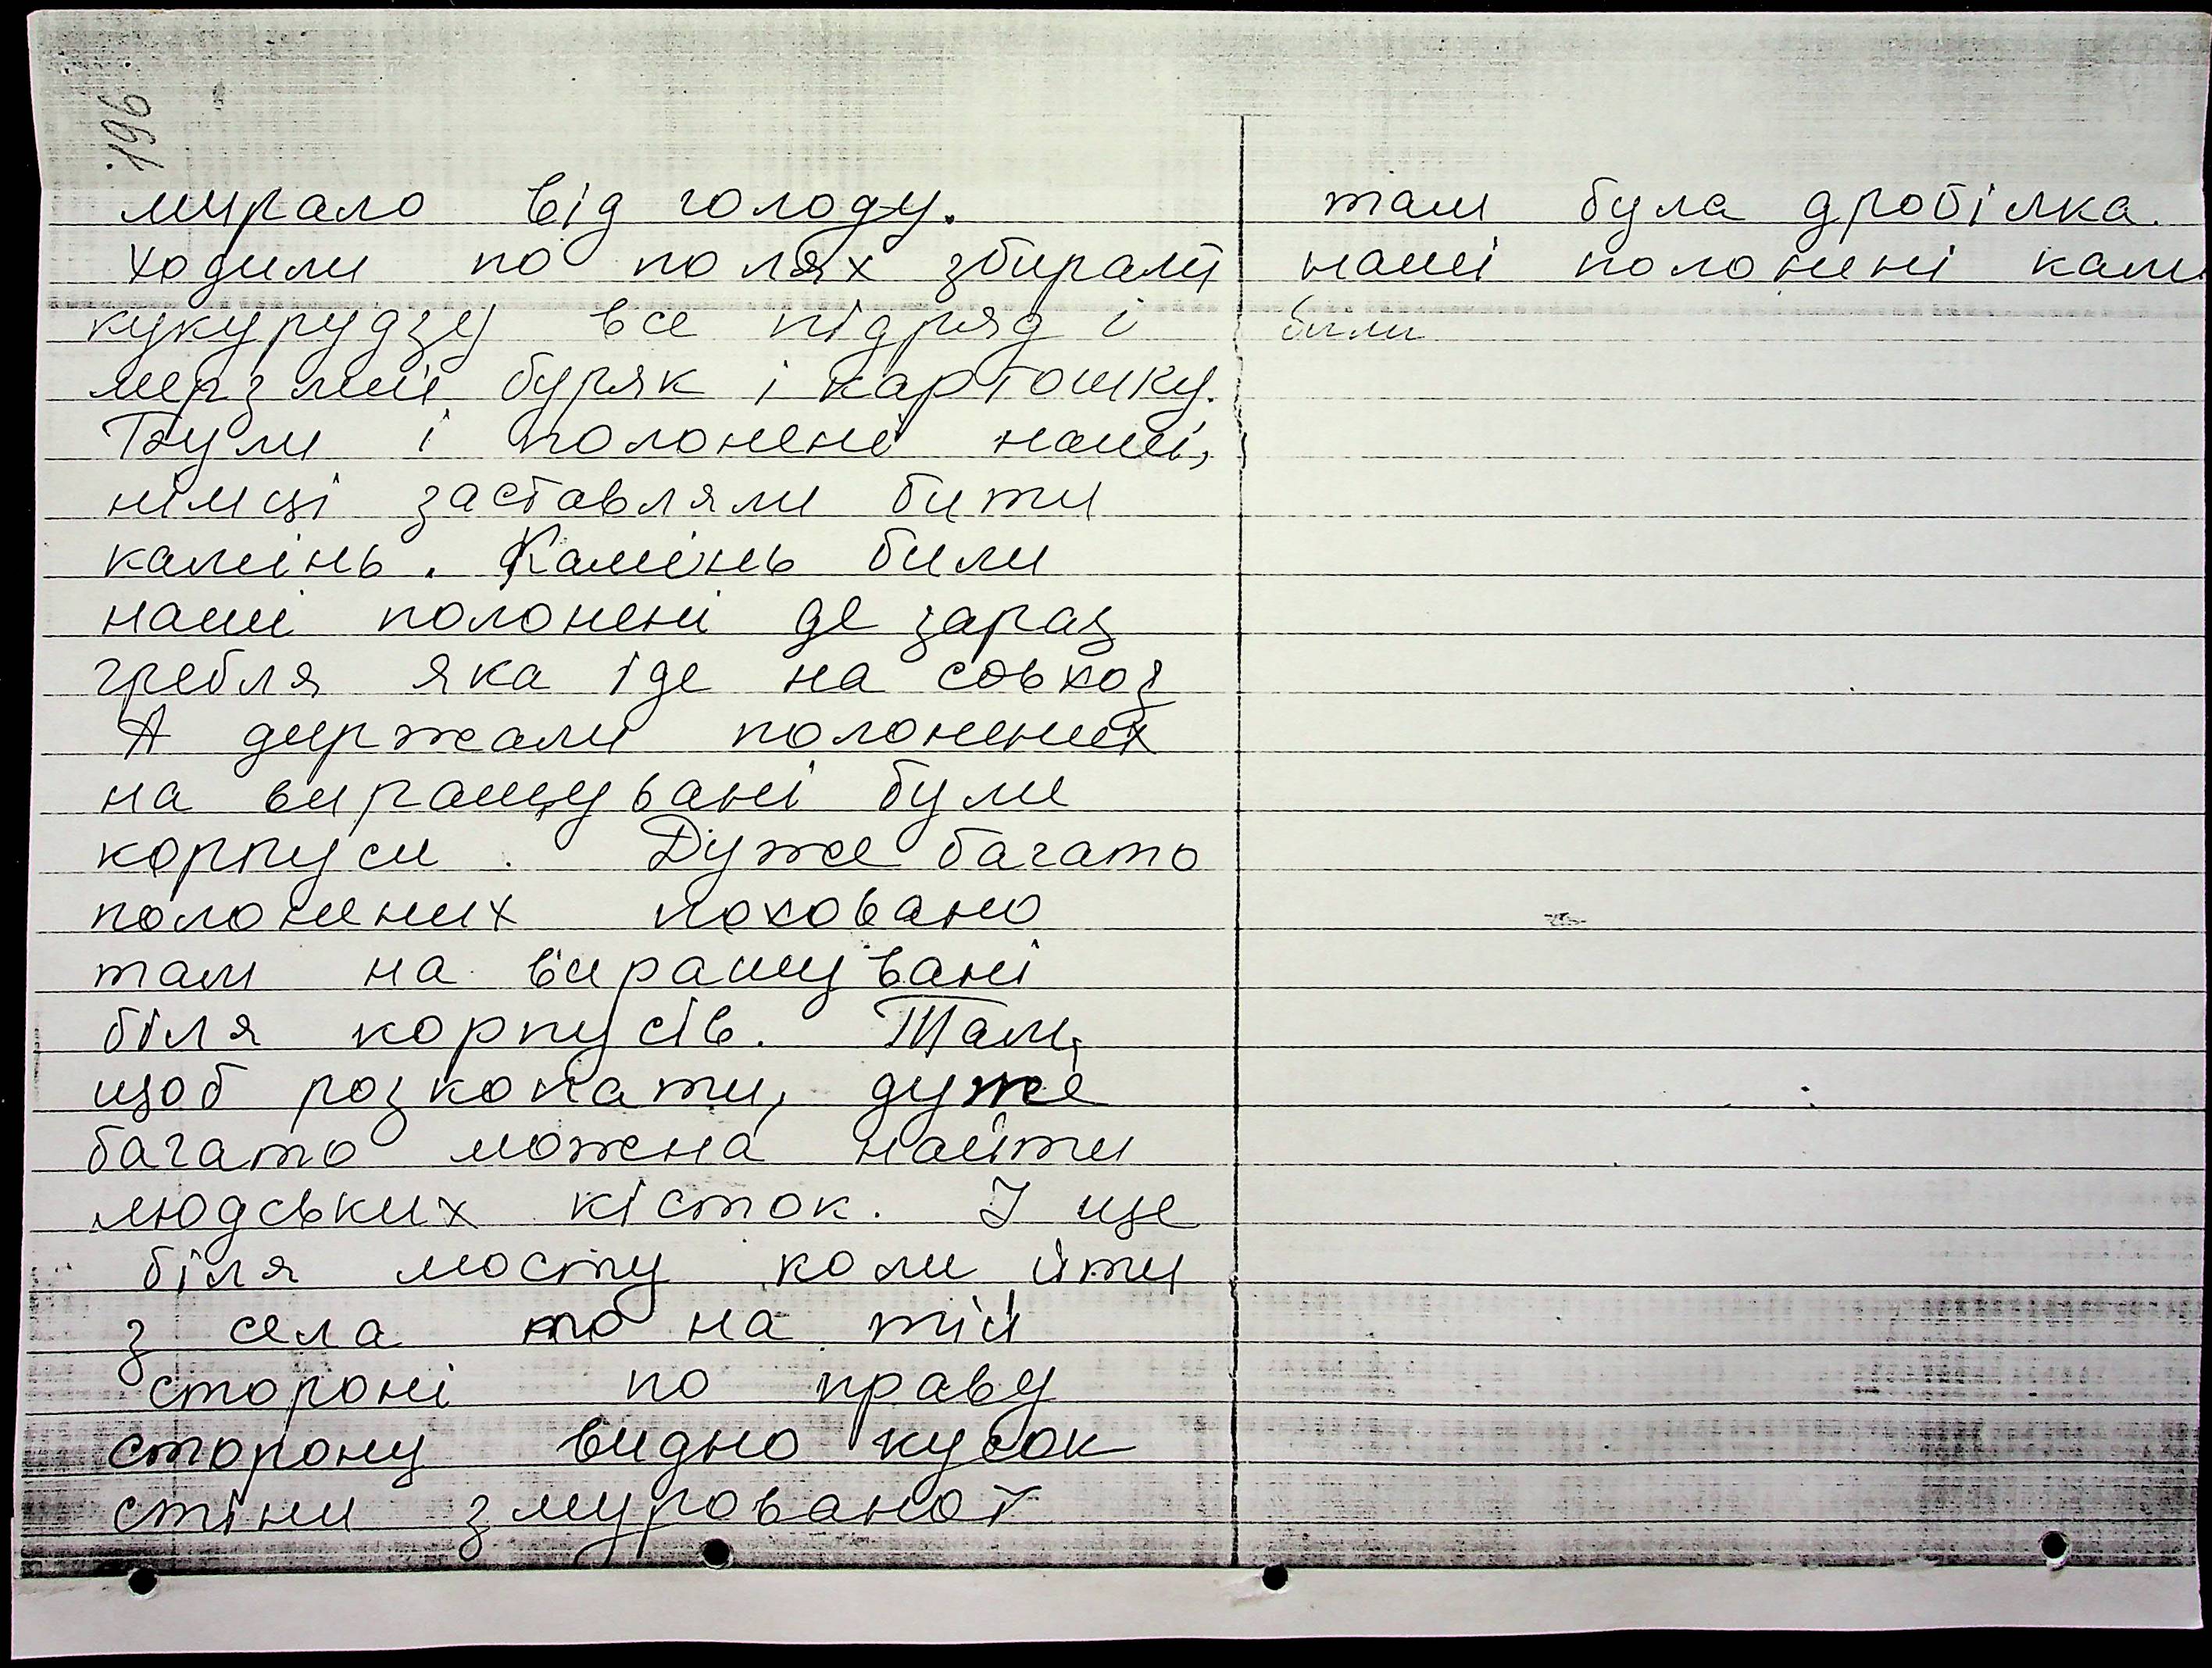 196
мирало від голоду.
Ходили по полях збирали
кукурудзу все підряд і
мерзлий буряк і картошку.
Були і полонені наші,
німці заставляли бити
камінь. Камінь били
наші полонені де зараз
гребля яка іде на совхоз
А держали полонених
на вирощувані були
корпуси. Дуже багато
полонених поховано
там на виращувані
біля корпусів. Там,
щоб розкопати, дуже
багато можна найти
людських кісток. І ще
біля мосту коли йти
з села то на тій
стороні по праву
сторону видно кусок
стіни змурованої
там була дробілка.
наші полонені кам
били